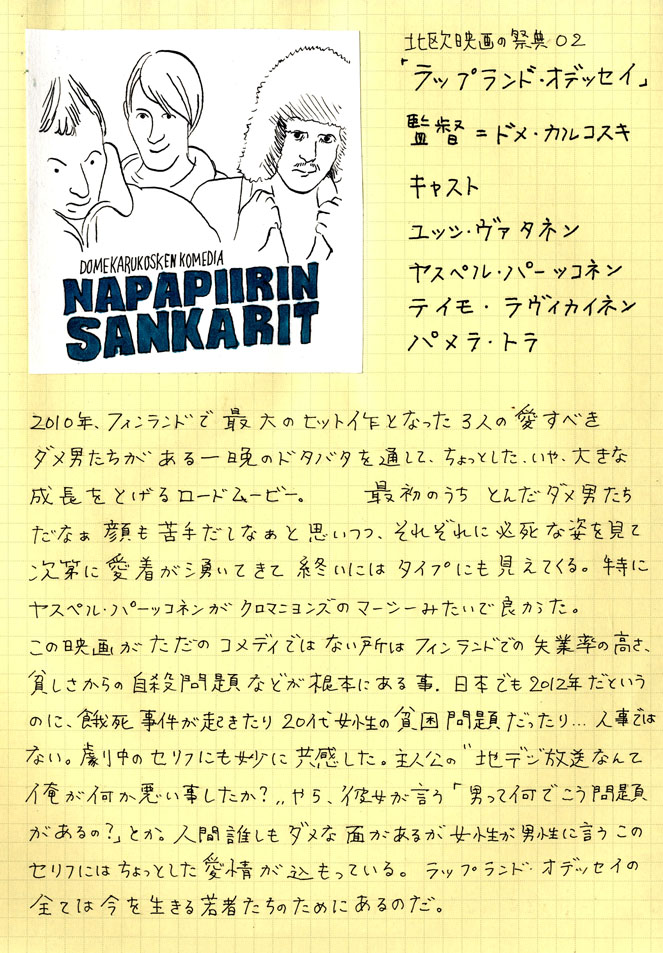 北欧映画の祭典02
「ラップランド・オデッセイ」
監督=ドメ・カルコスキ
キャスト
ユッシ・ヴァタネン
ヤスペル・パーッコネン
テイモ・ラヴィカイネン
パメラ・トラ
DOMEKARUKOSKEN KOMEDIA
NAPAPIIRIN
SANKARIT
2010年、フィンランドで最大のヒット作となった3人の愛すべき
ダメ男たちがある一晩のドタバタを通して、ちょっとした、いや、大きな
成長をとげるロードムービー。 最初のうちとんだダメ男たち
だなぁ顔も苦手だしなぁと思いつつ、それぞれに必死な姿を見て
次第に愛着が湧いてきて終いにはタイプにも見えてくる。特に
ヤスペル・パーッコネンがクロマニヨンズのマーシーみたいで良かった。
この映画がただのコメディではない所はフィンランドでの失業率の高さ、
貧しさからの自殺問題などが根本にある事。日本でも2012年だという
のに、餓死事件が起きたり20代女性の貧困問題だったり…人事では
ない。劇中のセリフにも妙に共感した。主人公の〝地デジ放送なんて
俺が何か悪い事したか?〟やら、彼女が言う「男って何でこう問題
があるの?」とか。人間誰しもダメな面があるが女性が男性に言うこの
セリフにはちょっとした愛情が込もっている。ラップランド・オデッセイの
全ては今を生きる若者たちのためにあるのだ。